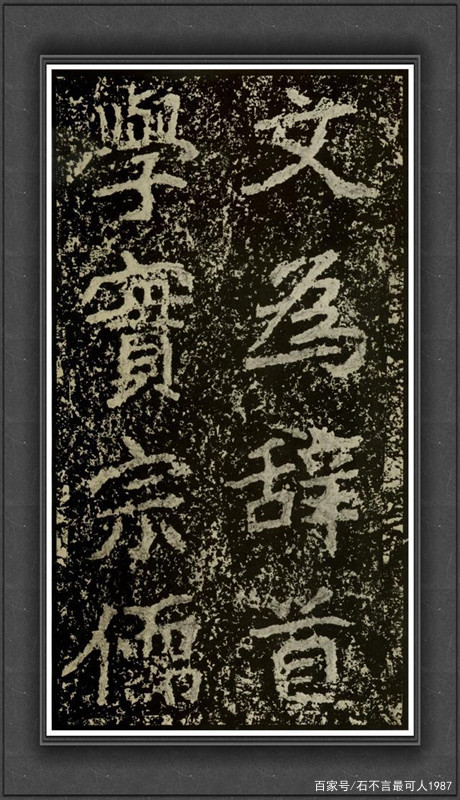 文為辞首
學實宗儒
百家号/石不言最可人1987